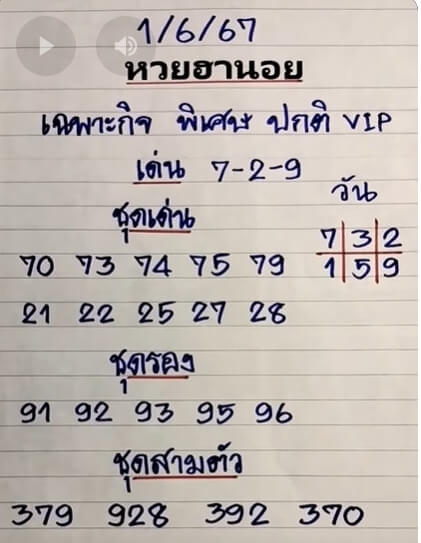 1/6/67
หวยฮานอย
เฉพาะกิจ พิเศษ ปกติ VIP
เด่น 7-2-9
วัน
ชุดเด่น
7 3 2
70 73 74 75 79
1 5 9
21 22 25 27 28
ชุดรอง
91 92 93 95 96
ชุดสามตัว
379 928 392 370